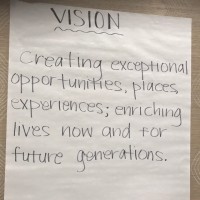 VISION
Creating exceptional
opportunities, places,
experiences; enriching
lives now and for
future generations.